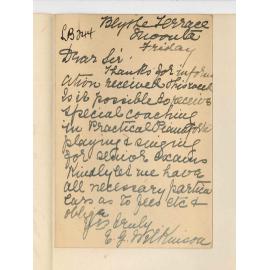 Blythe Terrace
LB 244 Moonta
Friday
Dear Sir,
Thanks for inform
ation received this week
Is it possible to receive
special coaching
in Practical Pianoforte
playing & singing
for senior exams
Kindly let me have
all necessary particu
lars as to fees etc &
oblige
Yrs truly
E. G. Wilkinson